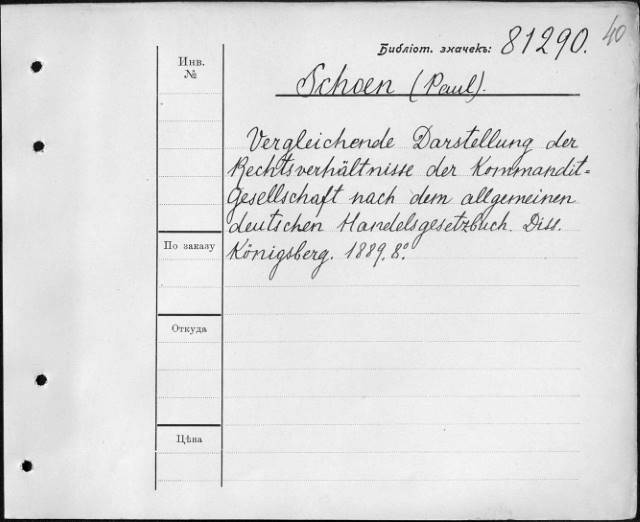 40
Библіот. значекъ: 81290.
Инв.
№
Schoen (Paul).
Vergleichende Darstellung der
Rechtsverhältnisse der Kommandit=
Gesellschaft nach dem allgemeinen
deutschen Handelsgesetzbuch. Diss.
Königsberg. 1889. 8º
По заказу
Откуда
Цѣна